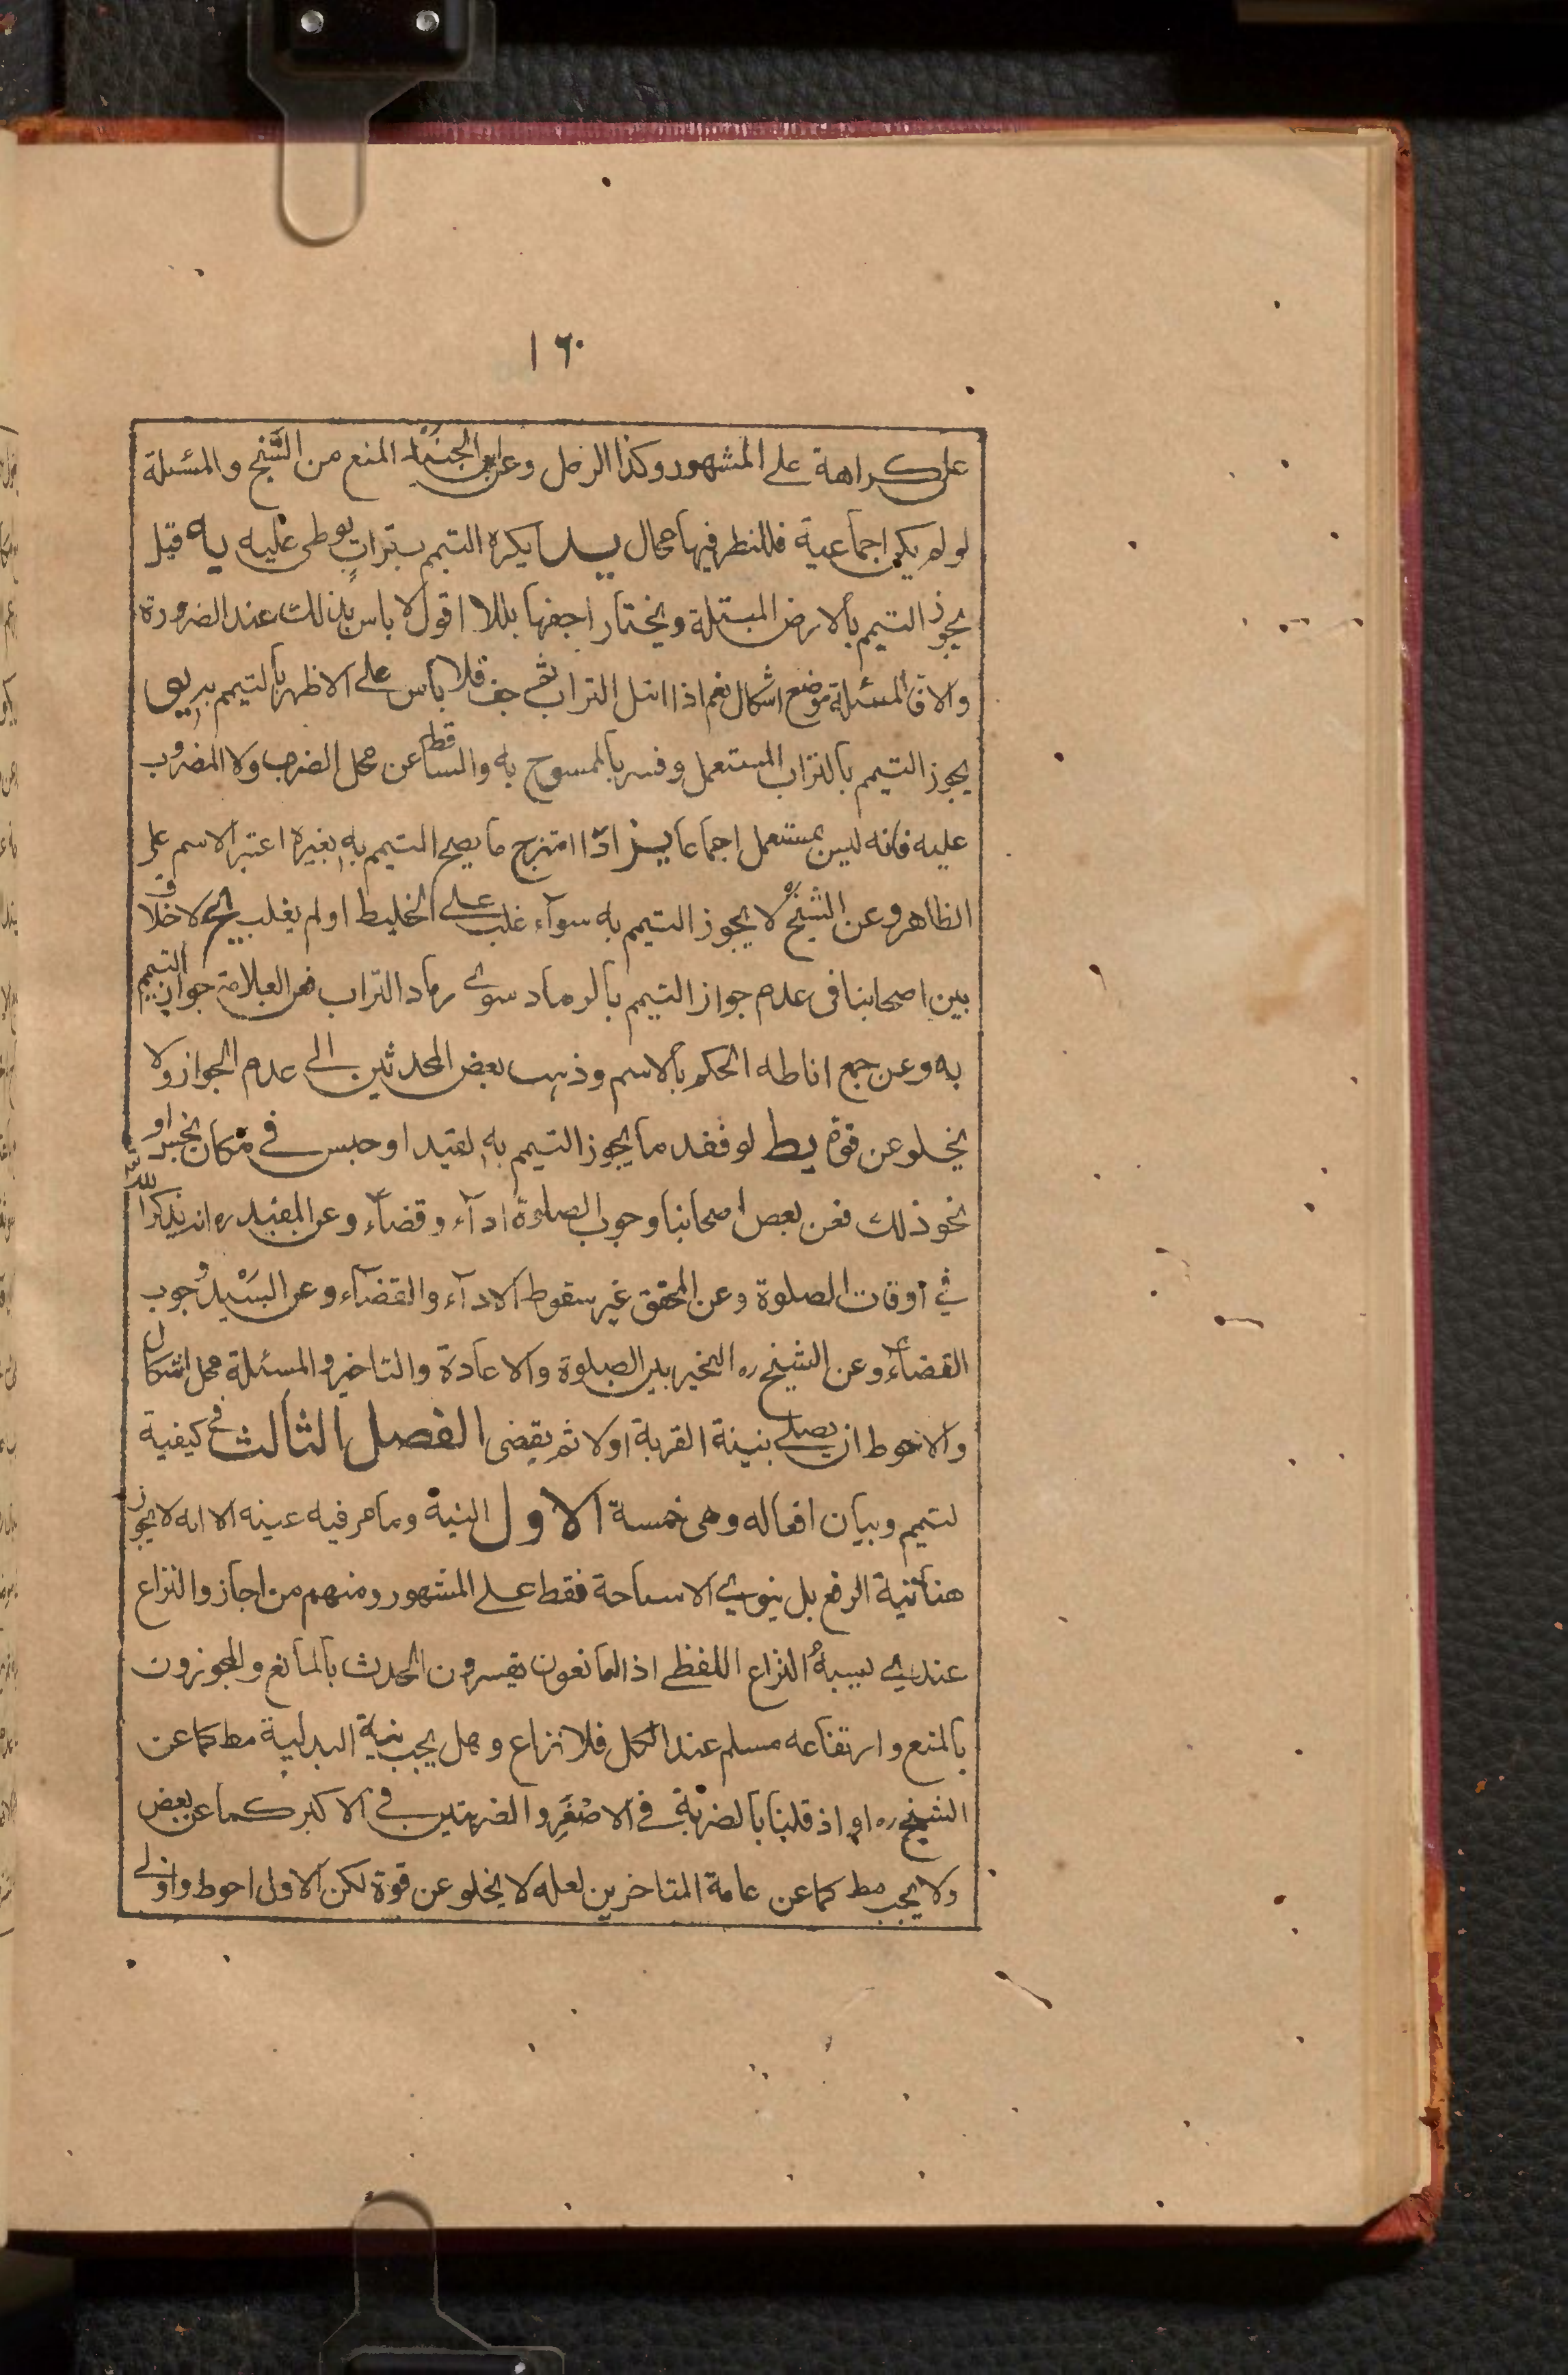 ١٦٠
على كراهة على المشهور وكذا الرمل وعن ابن الجنيد المنع من السبخ والمسئلة
لو لم يكن اجماعية فللنظر فيها مجال يد يكره التيمم بتراب يوطى عليه يه قيل
يجوز التيمم بالارض المبتلة ويختار اجفها بللا اقول لا باس بذلك عند الضرورة
والا فالمسئلة موضع اشكال نعم اذا ابتل التراب ثم جف فلا باس على الاظهر بالتيمم به يو
يجوز التيمم بالتراب المستعمل وفسر بالممسوح به والساقط عن محل الضرب ولا المضروب
عليه فانه ليس بمستعمل اجماعا يز اذا امتزج ما يصح التيمم به بغيره اعتبر الاسم على
الظاهر وعن الشيخ ره لا يجوز التيمم به سوآء غلب على الخليط او لم يغلب يح لا خلاف
بين اصحابنا فى عدم جواز التيمم بالرماد سوى رماد التراب فعن العلامة جواز التيمم
به وعن جمع اناطه الحكم بالاسم وذهب بعض المحدثين الى عدم الجواز ولا
يخلو عن قوة يط لو فقد ما يجوز التيمم به لقيد او حبس في مكان نجس او
نحو ذلك فعن بعض اصحابنا وجوب الصلوة ادآء وقضآء وعن المفيد ره انه يذكر الله
في اوقات الصلوة وعن المحقق غير سقوط الادآء والقضآء وعن السيد وجوب
القضآء وعن الشيخ ره التخيير بين الصلوة والاعادة والتاخير والمسئلة محل اشكال
والاحوط ان يصلي بنية القربة اولا ثم يقضى الفصل الثالث في كيفية
لتيمم وبيان افعاله وهى خمسة الاول النية وما مر فيه عينه الا انه لا يجوز
هنا نية الرفع بل ينوي الاستباحة فقط على المشهور ومنهم من اجاز والنزاع
عندي يشبه النزاع اللفظي اذ المانعون يفسرون الحدث بالمانع والمجوزون
بالمنع وارتفاعه مسلم عند الكل فلا نزاع وهل يجب نية البدلية مط كما عن
الشيخ ره او اذ قلنا بالضربة في الاصغر والضربتين في الاكبر كما عن بعض
ولا يجب مط كما عن عامة المتاخرين لعله لا يخلو عن قوة لكن الاول احوط واولى